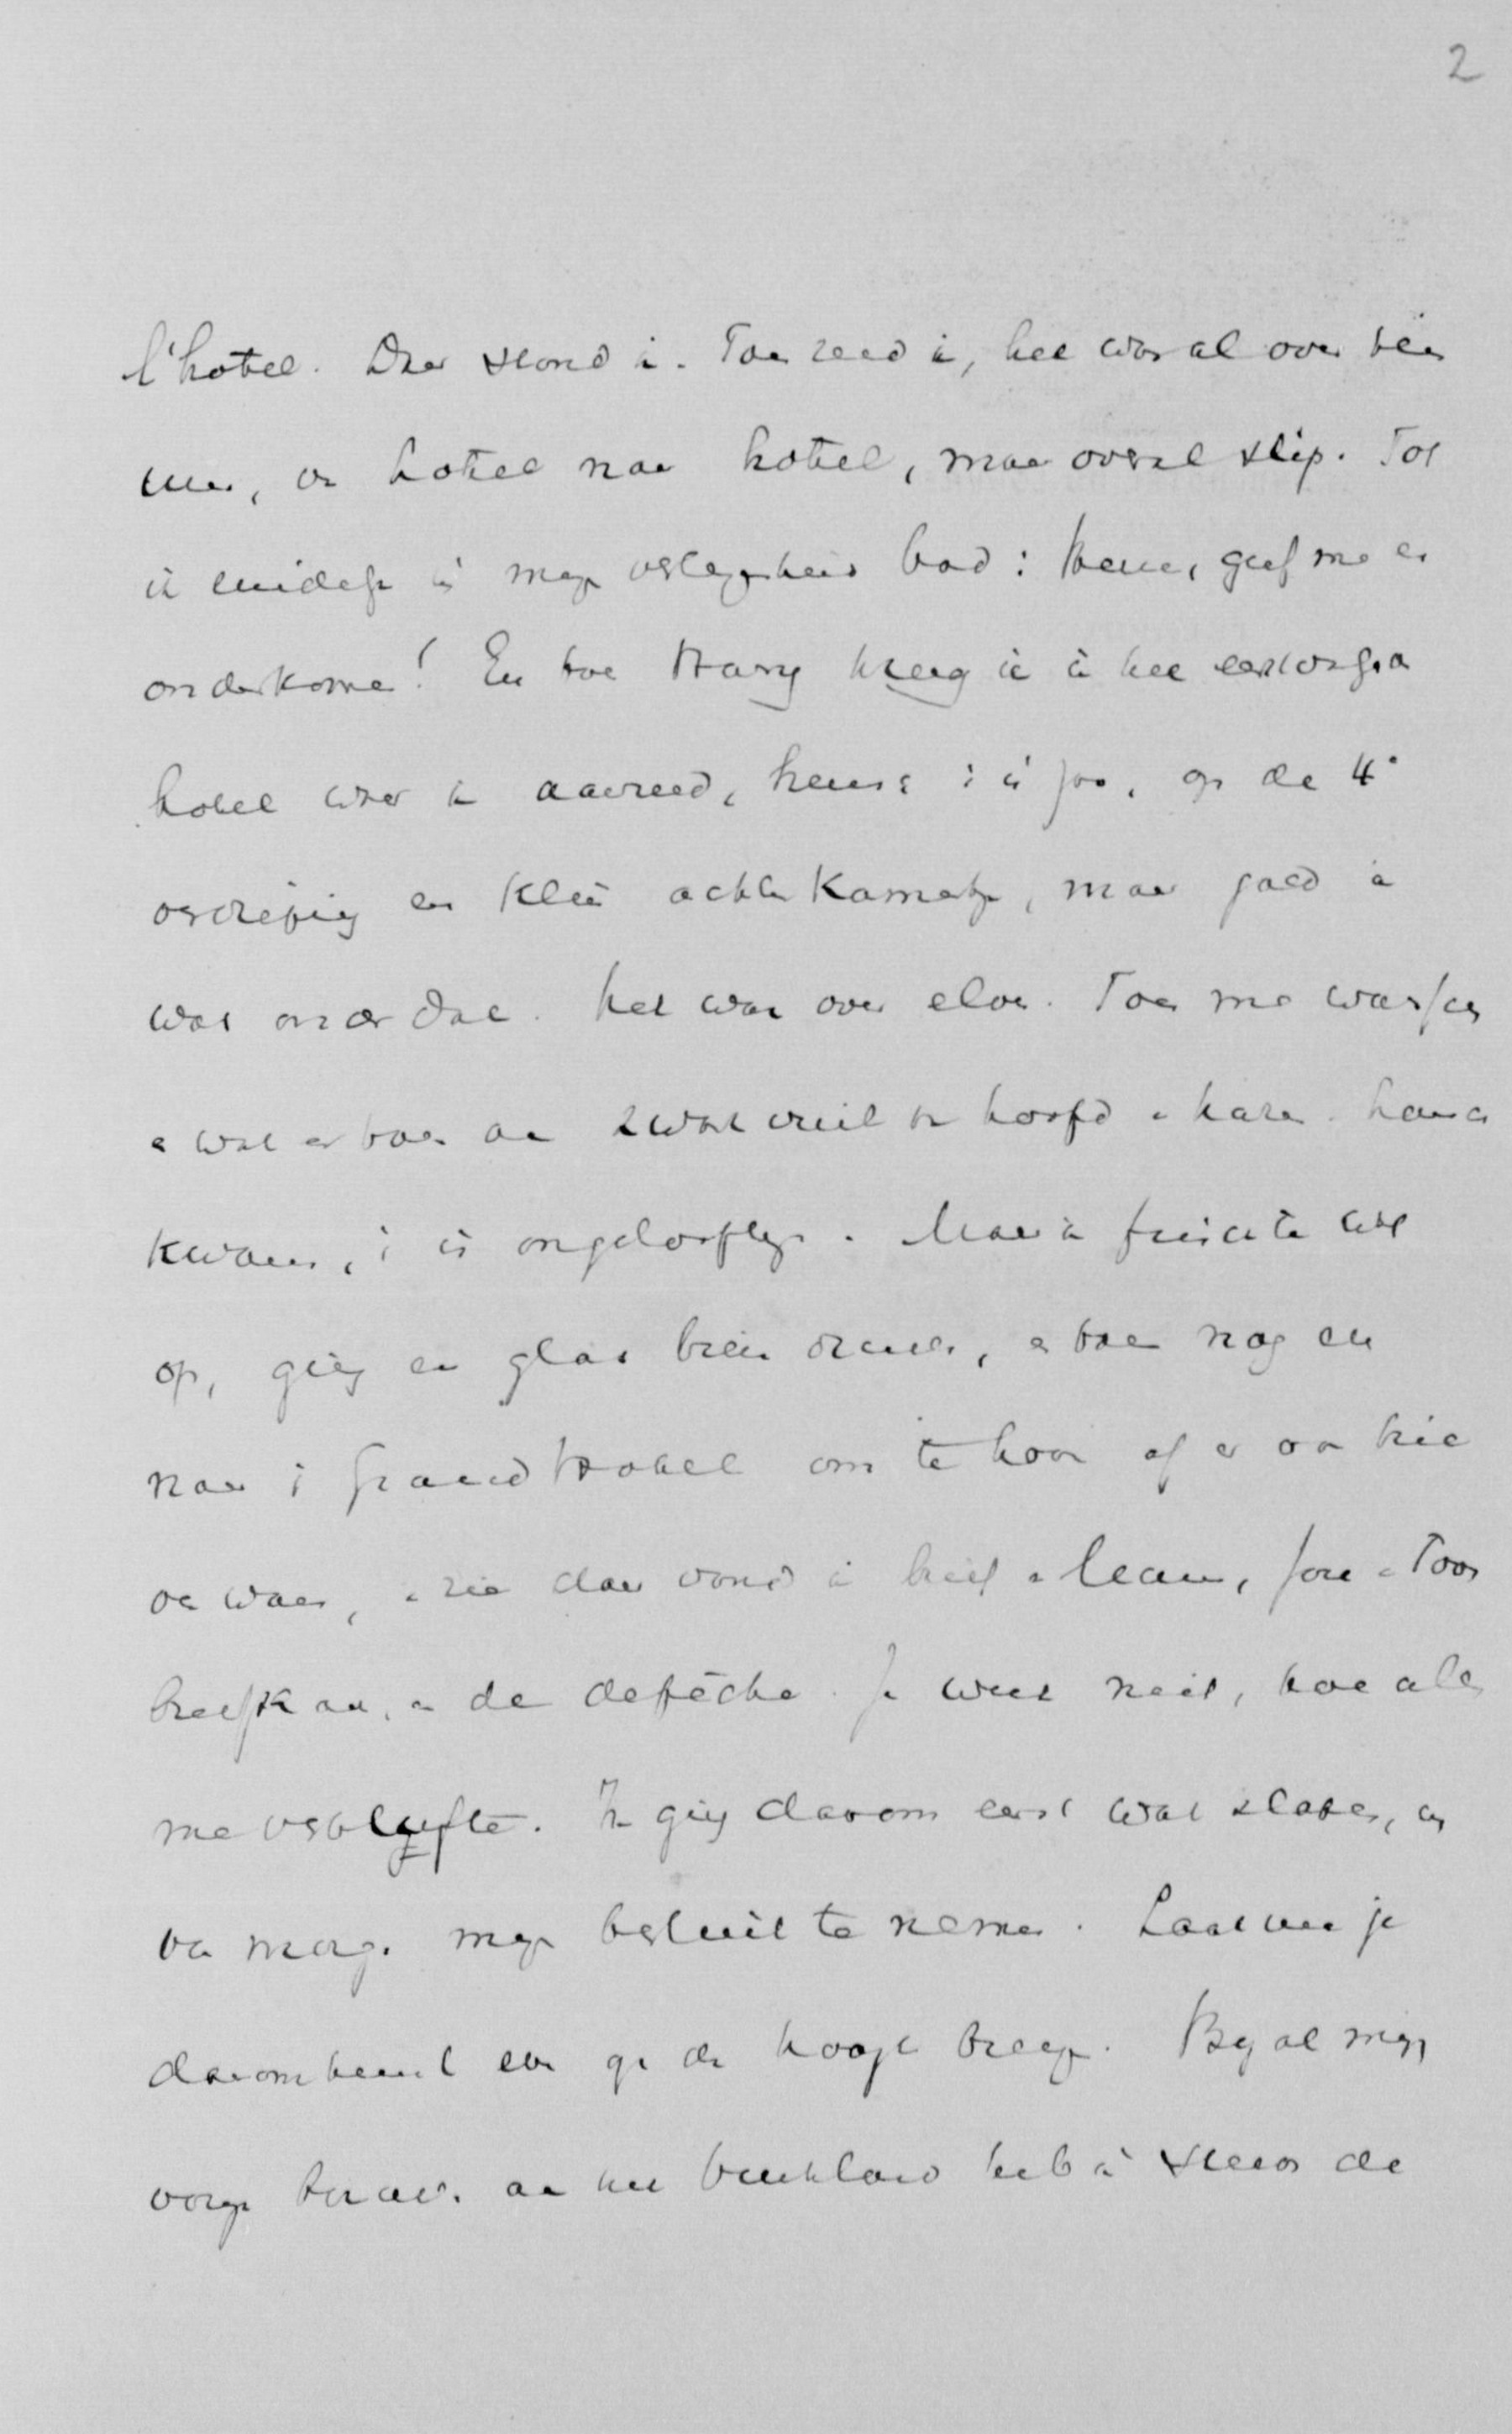 2
l'hotel. Daar stond ik. Toen reed ik, het was al over tien
uur, van hotel naar hotel, maar overal slip. Tot
ik eindelijk in mijn verlegenheid bad: Heere, geef me een
onderkomen! En toen kreeg ik in het eerstvolgende
hotel waar ik aanreed, heusch 't is zoo, op de 4e
verdieping een klein achterkamertje, maar goed ik
was onder dak. Het was over elven. Toen me wasschen
en wat er toen aan zwart vuil van hoofd en haren en handen
kwam, 't is ongelooflijk. Maar ik frischte wat
op, ging een glas bier drinken, en toen nog even
naar 't Grand Hotel om te hooren of er ook brie
ven waren, en zie daar vond ik brief en , en Toos
briefkaart, en de depêche. Je weet niet, hoe alles
me verblufte. Ik ging daarom eerst wat slapen, om
van morgen mijn besluit te nemen. Laat me je
daaromtrent even op de hoogte brengen. By al mijn
vorige in het buitenland heb ik steeds de